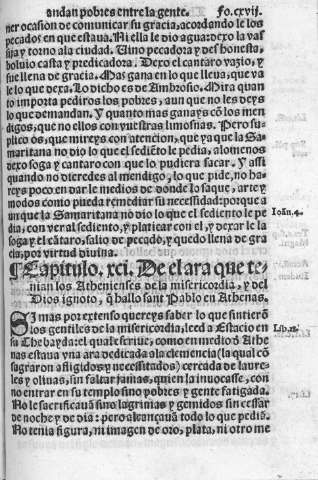 andan pobres entre la gente. Fo.cxvij.
ner ocasion de comunicar su gracia, acordando le los
pecados en que estaua. Ni ella le dio agua: dexo la va
sija y torno ala ciudad. Vino pecadora y deshonesta,
boluio casta y predicadora. Dexo el cantaro vazio, y
fue llena de gracia. Mas gana en lo que lleua, que va
le lo que dexa. Lo dicho es de Ambrosio. Mira quan
to importa pediros los pobres, aun que no les deys
lo que demandan. Y quanto mas ganays cõ los men
digos, que no ellos con vuestras limosnas. Pero su
plico os, que mireys con atencion, que ya que la Sa
maritana no dio lo que el sediẽto le pedia, alomenos
dexo soga y cantaro con que lo pudiera sacar. Y assi
quando no dieredes al mendigo, lo que pide, no ha
reys poco en dar le medios de donde lo saque, arte y
modos como pueda remediar su necessidad: porque a
un que la Samaritana nõ dio lo que el sediento le pe
dia, con ver al sediento, y platicar con el, y dexar le la
soga y el cãtaro, salio de pecado, y quedo llena de gra
cia, por virtud diuina.
Ioãn. 4.
¶ Capitulo. xci. De el ara que te-
nian los Athenienses de la misericordia, y del
Dios ignoto, q̃ hallo sant Pablo en Athenas.
SI mas por extenso quereys saber lo que sintierõ
los gentiles de la misericordia, leed a Estacio en
su Thebayda: el qual escriue, como en medio d̃ Athe
nas estaua vna ara dedicada ala clemencia (la qual cõ
sagraron afligidos y necessitados) cercada de laure-
les y oliuas, sin faltar jamas, quien la inuocasse, con
no entrar en su templo sino pobres y gente fatigada.
No le sacrificauã sino lagrimas y gemidos sin cessar
de noche y de dia: pero alcançauã todo lo que pediã.
No tenia figura, ni imagen de oro, plata, ni otro me
Lib. 12.